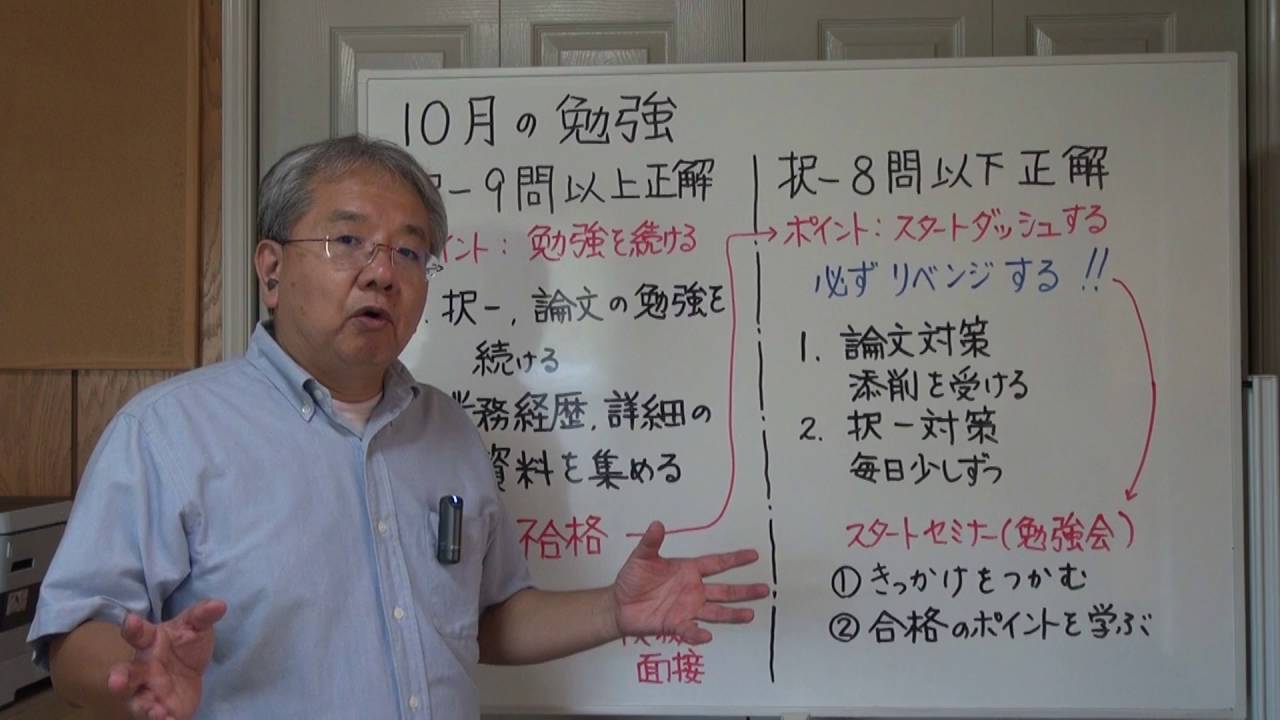 10月の勉強
択一9問以上正解
イント：勉強を続ける
択一，論文の勉強を
続ける
業務経歴，詳細の
資料を集める
不合格
面接
択一8問以下正解
ポイント：スタートダッシュする
必ずリベンジする!!
1. 論文対策
添削を受ける
2. 択一対策
毎日少しずつ
スタートセミナー(勉強会)
①きっかけをつかむ
②合格のポイントを学ぶ